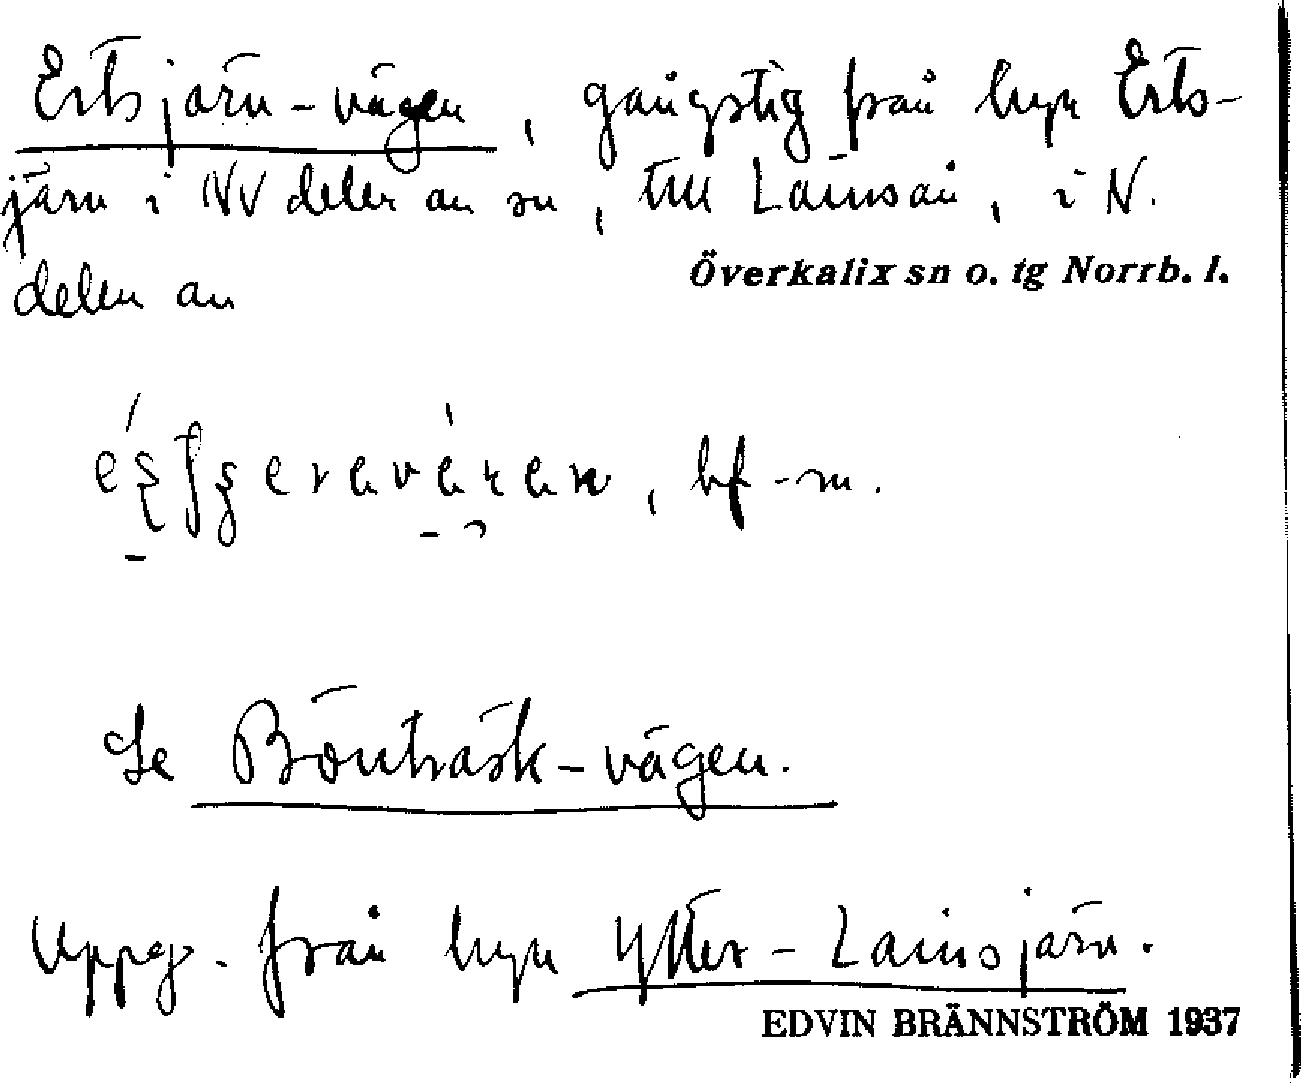 Ertsjärn-vägen, gångstig från byn Erts-
järn i NV delen av sn, till Lainsån, i N.
delen av
Överkalix sn o. tg Norrb. l.
bf - m.
Se Bönträsk-vägen.
Uppg. från byn Ytter-Lainsjärn.
EDVIN BRÄNNSTRÖM 1937